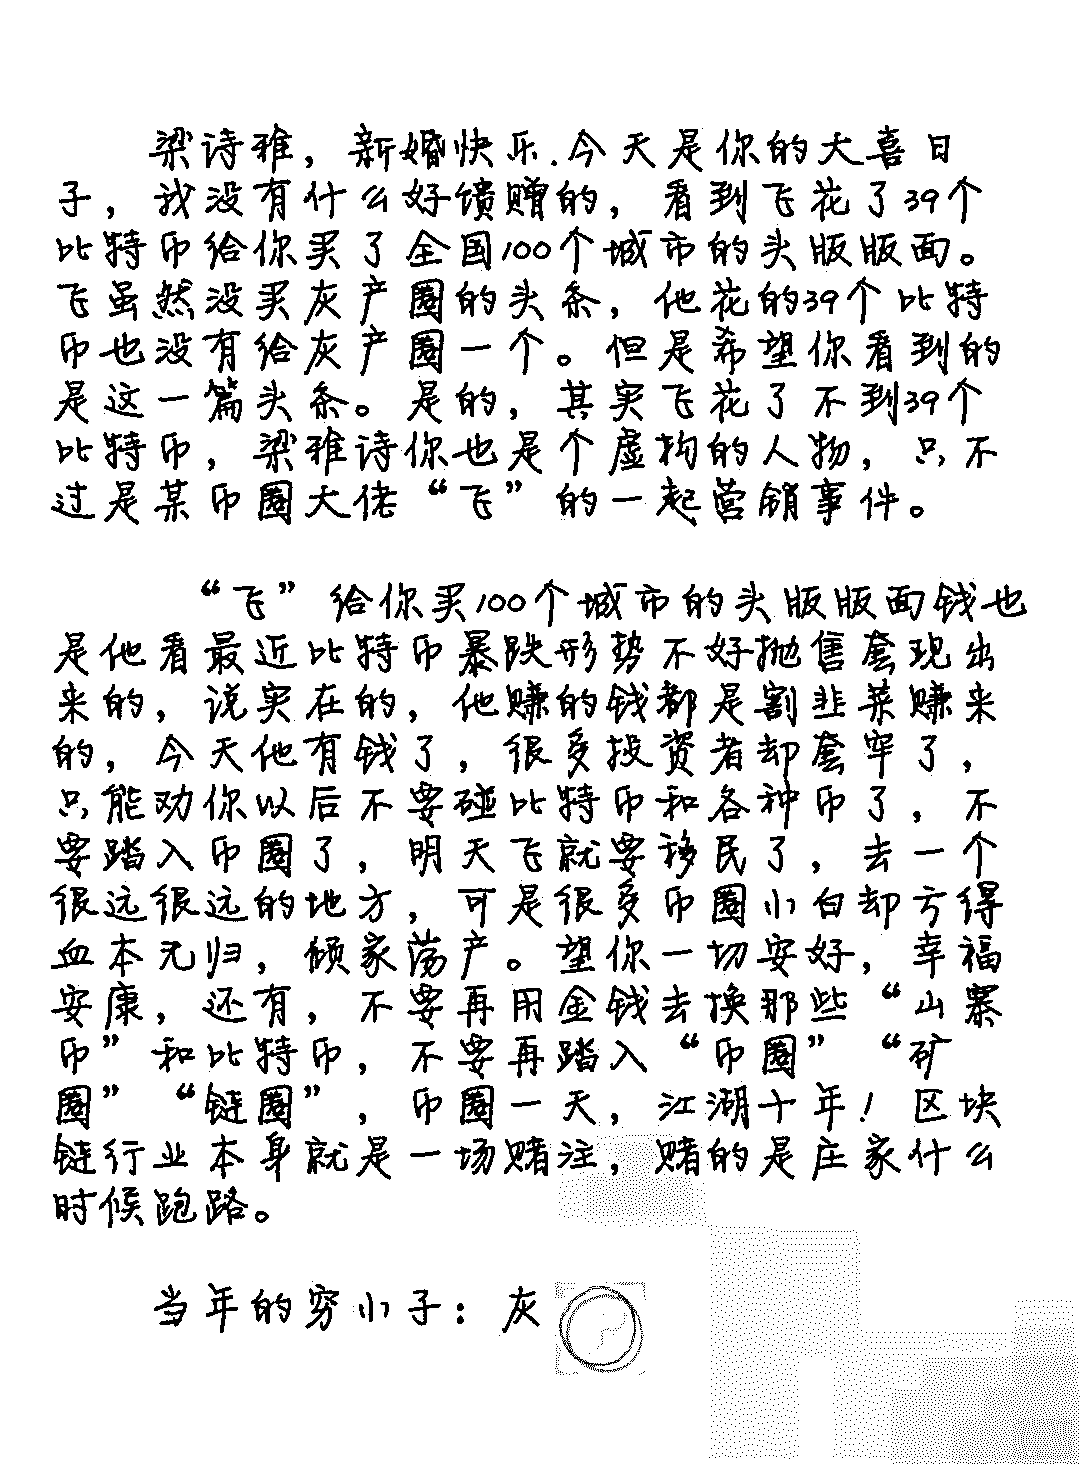 梁诗雅，新婚快乐.今天是你的大喜日
子，我没有什么好馈赠的，看到飞花了39个
比特币给你买了全国100个城市的头版版面。
飞虽然没买灰产圈的头条，他花的39个比特
币也没有给灰产圈一个。但是希望你看到的
是这一篇头条。是的，其实飞花了不到39个
比特币，梁雅诗你也是个虚构的人物，只不
过是某币圈大佬“飞”的一起营销事件。
“飞”给你买100个城市的头版版面钱也
是他看最近比特币暴跌形势不好抛售套现出
来的，说实在的，他赚的钱都是割韭菜赚来
的，今天他有钱了，很多投资者却套牢了，
只能劝你以后不要碰比特币和各种币了，不
要踏入币圈了，明天飞就要移民了，去一个
很远很远的地方，可是很多币圈小白却亏得
血本无归，倾家荡产。望你一切安好，幸福
安康，还有，不要再用金钱去换那些“山寨
币”和比特币，不要再踏入“币圈”“矿
圈”“链圈”，币圈一天，江湖十年！区块
链行业本身就是一场赌注，赌的是庄家什么
时候跑路。
当年的穷小子：灰